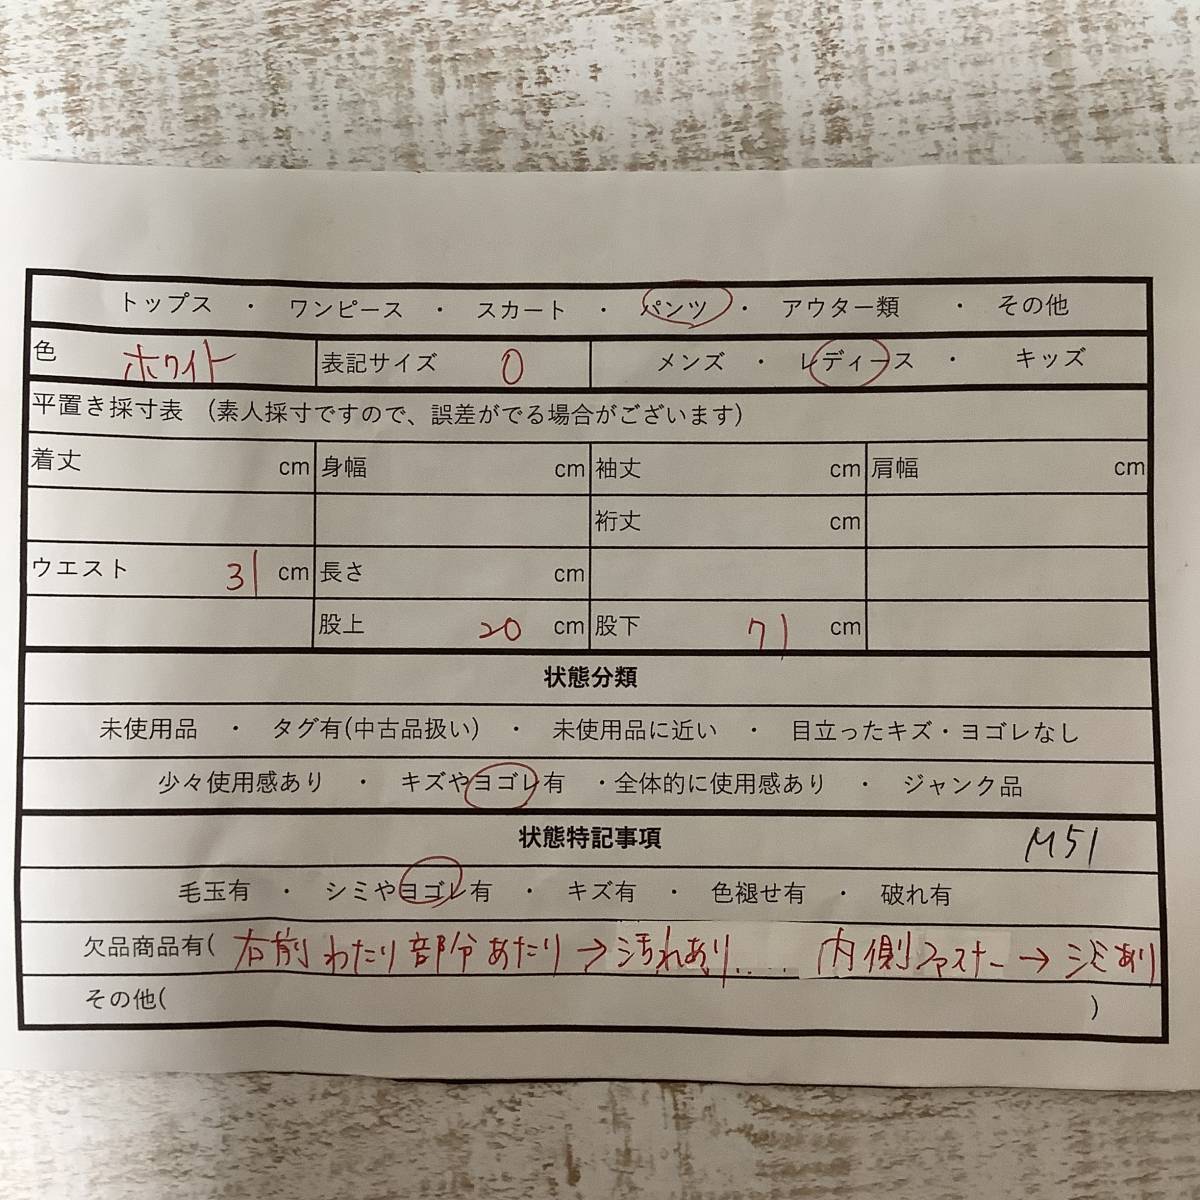 トップス ・ ワンピース ・ スカート ・ パンツ ・ アウター類 ・ その他
色 ホワイト 表記サイズ 0 メンズ ・ レディース ・ キッズ
平置き採寸表 (素人採寸ですので、誤差がでる場合がございます)
着丈 cm 身幅 cm 袖丈 cm 肩幅 cm
裄丈 cm
ウエスト 31 cm 長さ cm
股上 20 cm 股下 71 cm
状態分類
未使用品 ・ タグ有(中古品扱い) ・ 未使用品に近い ・ 目立ったキズ・ヨゴレなし
少々使用感あり ・ キズやヨゴレ有 ・全体的に使用感あり ・ ジャンク品
状態特記事項 M51
毛玉有 ・ シミやヨゴレ有 ・ キズ有 ・ 色褪せ有 ・ 破れ有
欠品商品有( 右前わたり部分あたり→汚れあり..... 内側ファスナー→シミあり
その他( )